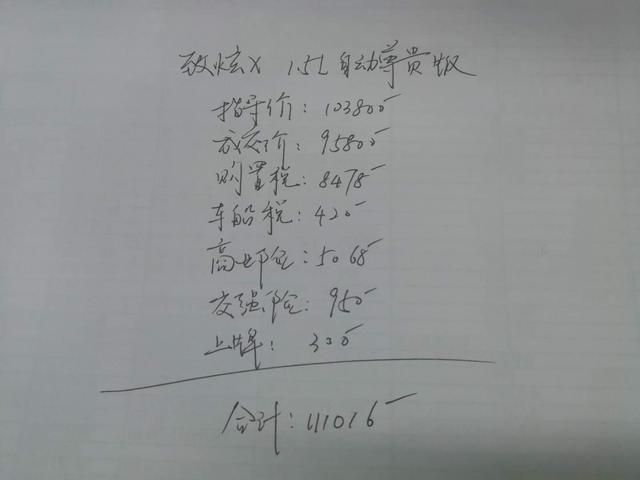 致炫X 1.5L自动尊贵版
指导价:103800
成交价:95800
购置税:8478
车船税:420
商业险:5068
交强险:950
上牌:300
合计:111016